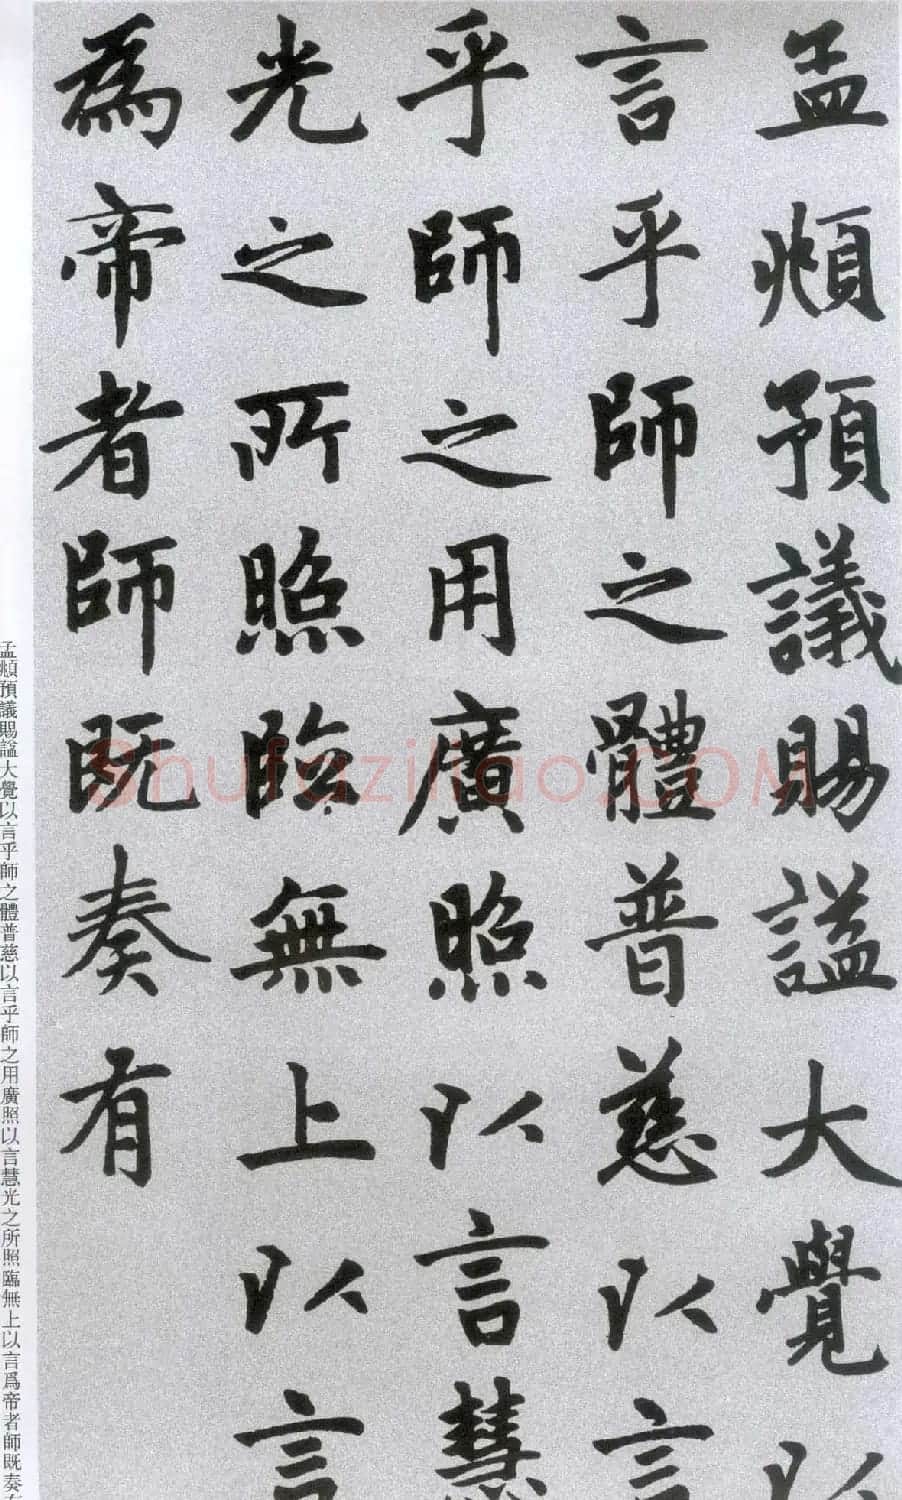 孟頫預議賜謚大覺以
言乎師之體普慈以言
乎師之用廣照以言慧
光之所照臨無上以言
為帝者師既奏有
孟頫預議賜謚大覺以言乎師之體普慈以言乎師之用廣照以言慧光之所照臨無上以言爲帝者師既奏有
Shufaziliao.COM